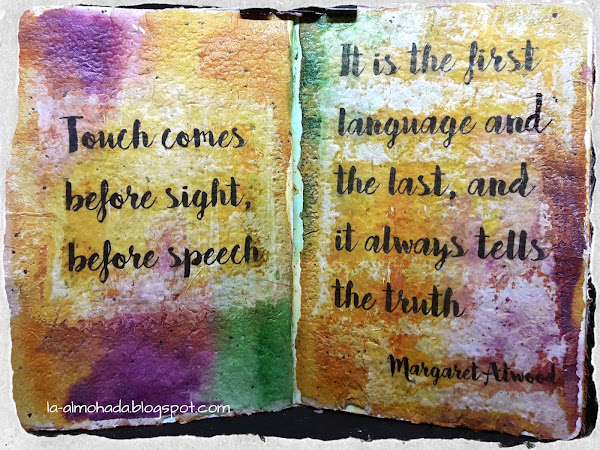 Touch comes
before sight,
before speech
It is the first
language and
the last, and
it always tells
the truth
Margaret Atwood
la-almohada.blogspot.com